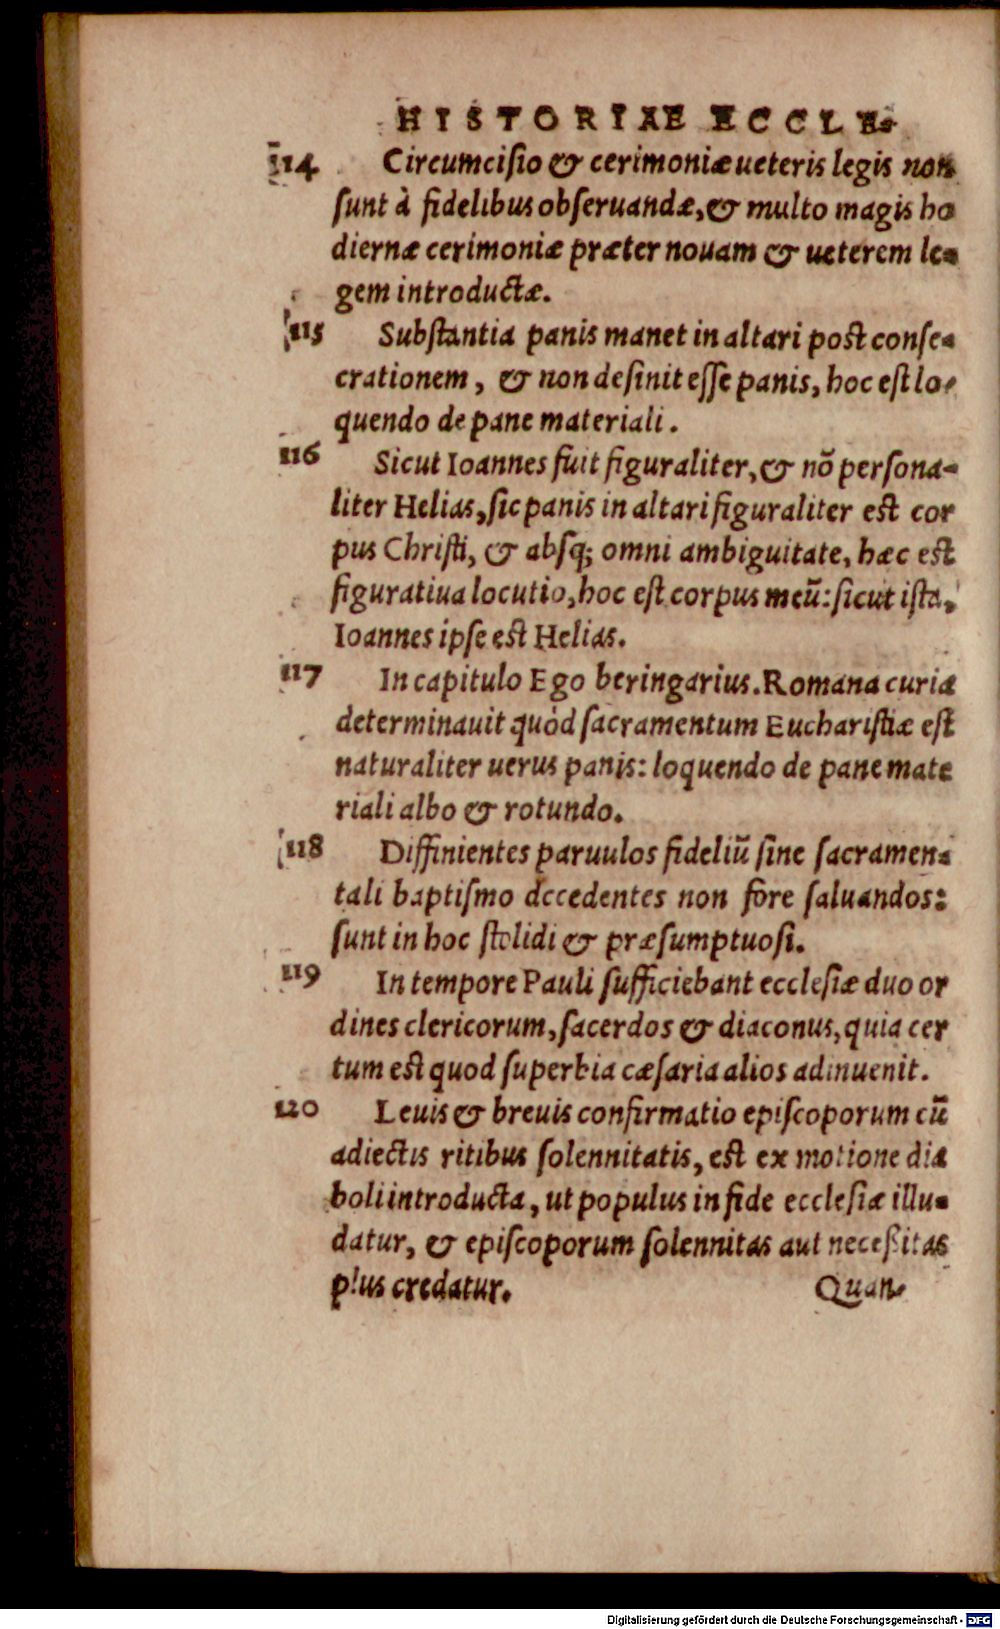 HISTORIAE ECCLE-
114 Circumcisio & cerimoniæ ueteris legis non
sunt à fidelibus obseruandæ, & multo magis ho
diernæ cerimoniæ præter nouam & ueterem le-
gem introductæ.
115 Substantia panis manet in altari post conse-
crationem, & non desinit esse panis, hoc est lo-
quendo de pane materiali.
116 Sicut Ioannes fuit figuraliter, & nõ persona-
liter Helias, sic panis in altari figuraliter est cor
pus Christi, & absq; omni ambiguitate, hæc est
figuratiua locutio, hoc est corpus meũ: sicut ista,
Ioannes ipse est Helias.
117 In capitulo Ego beringarius. Romana curia
determinauit quòd sacramentum Eucharistiæ est
naturaliter uerus panis: loquendo de pane mate
riali albo & rotundo.
118 Diffinientes paruulos fideliũ sine sacramen-
tali baptismo decedentes non fore saluandos:
sunt in hoc stolidi & præsumptuosi.
119 In tempore Pauli sufficiebant ecclesiæ duo or
dines clericorum, sacerdos & diaconus, quia cer
tum est quod superbia cæsaria alios adinuenit.
120 Leuis & breuis confirmatio episcoporum cũ
adiectis ritibus solennitatis, est ex motione dia
boli introducta, ut populus in fide ecclesiæ illu-
datur, & episcoporum solennitas aut necessitas
plus credatur. Quan-
Digitalisierung gefördert durch die Deutsche Forschungsgemeinschaft - DFG